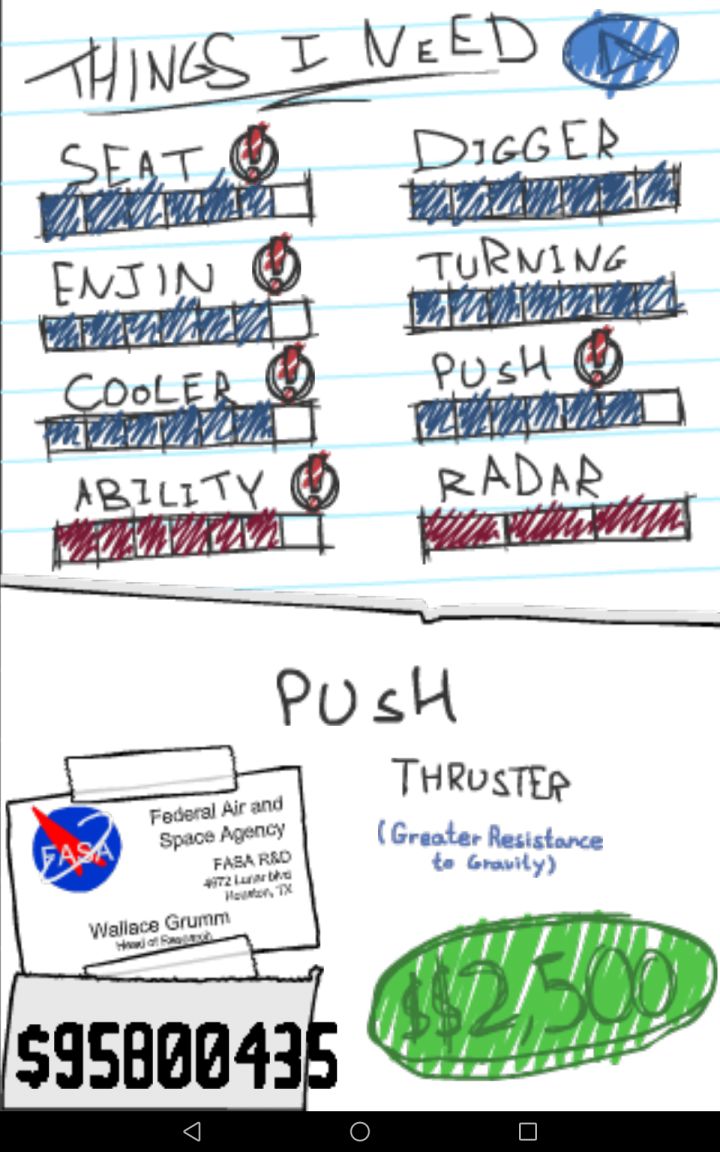 THINGS I NEED
SEAT
DIGGER
ENJIN
TURNING
COOLER
PUSH
ABILITY
RADAR
PUSH
THRUSTER
(Greater Resistance
to Gravity)
FASA
Federal Air and
Space Agency
FASA R&D
4972 Lunar blvd
Houston, TX
Wallace Grumm
Head of Research
$$2,500
$95800435